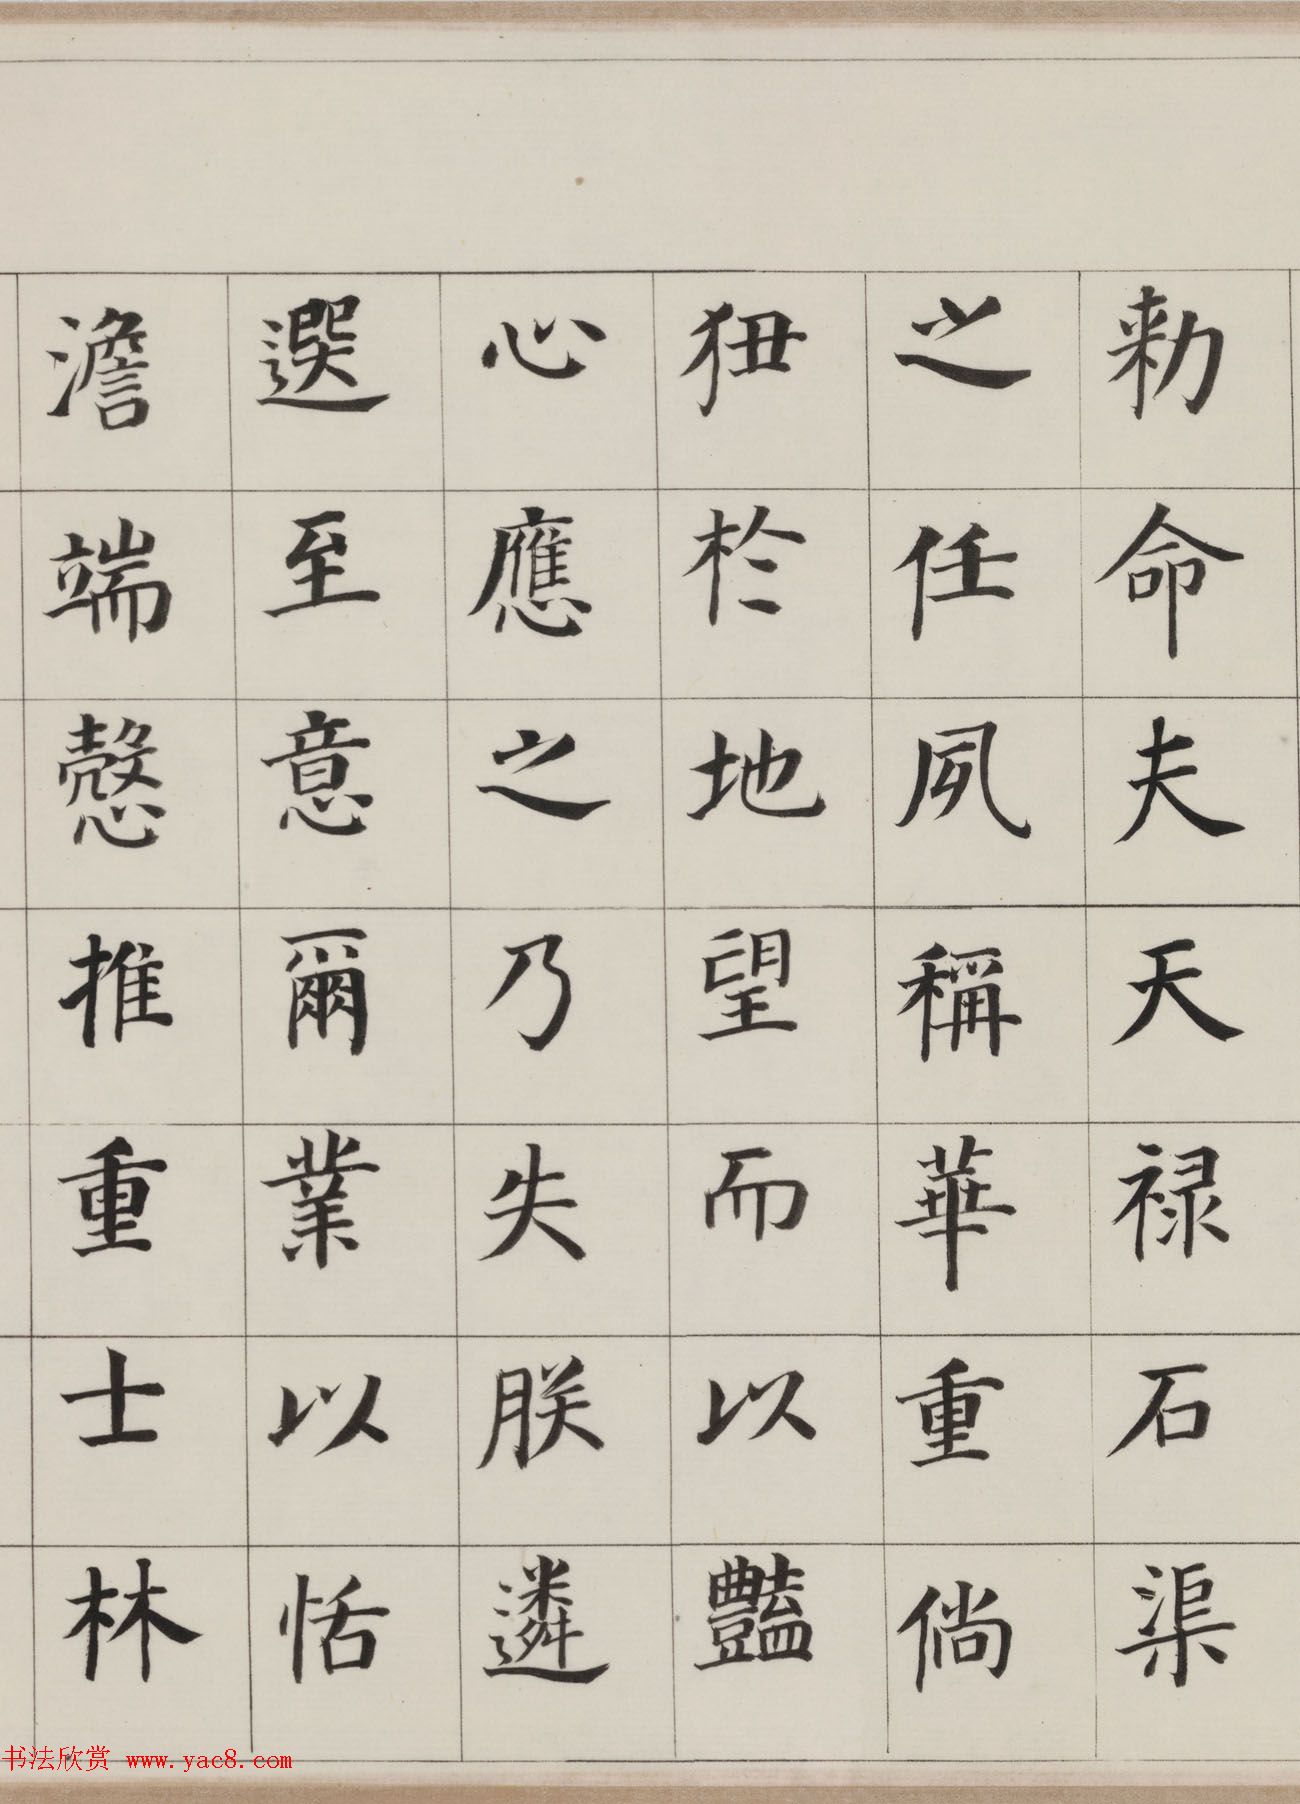 勑命夫天禄石渠
之任夙稱華重倘
狃於地望而以豔
心應之乃失朕遴
選至意爾業以恬
澹端慤推重士林
书法欣赏 www.yac8.com